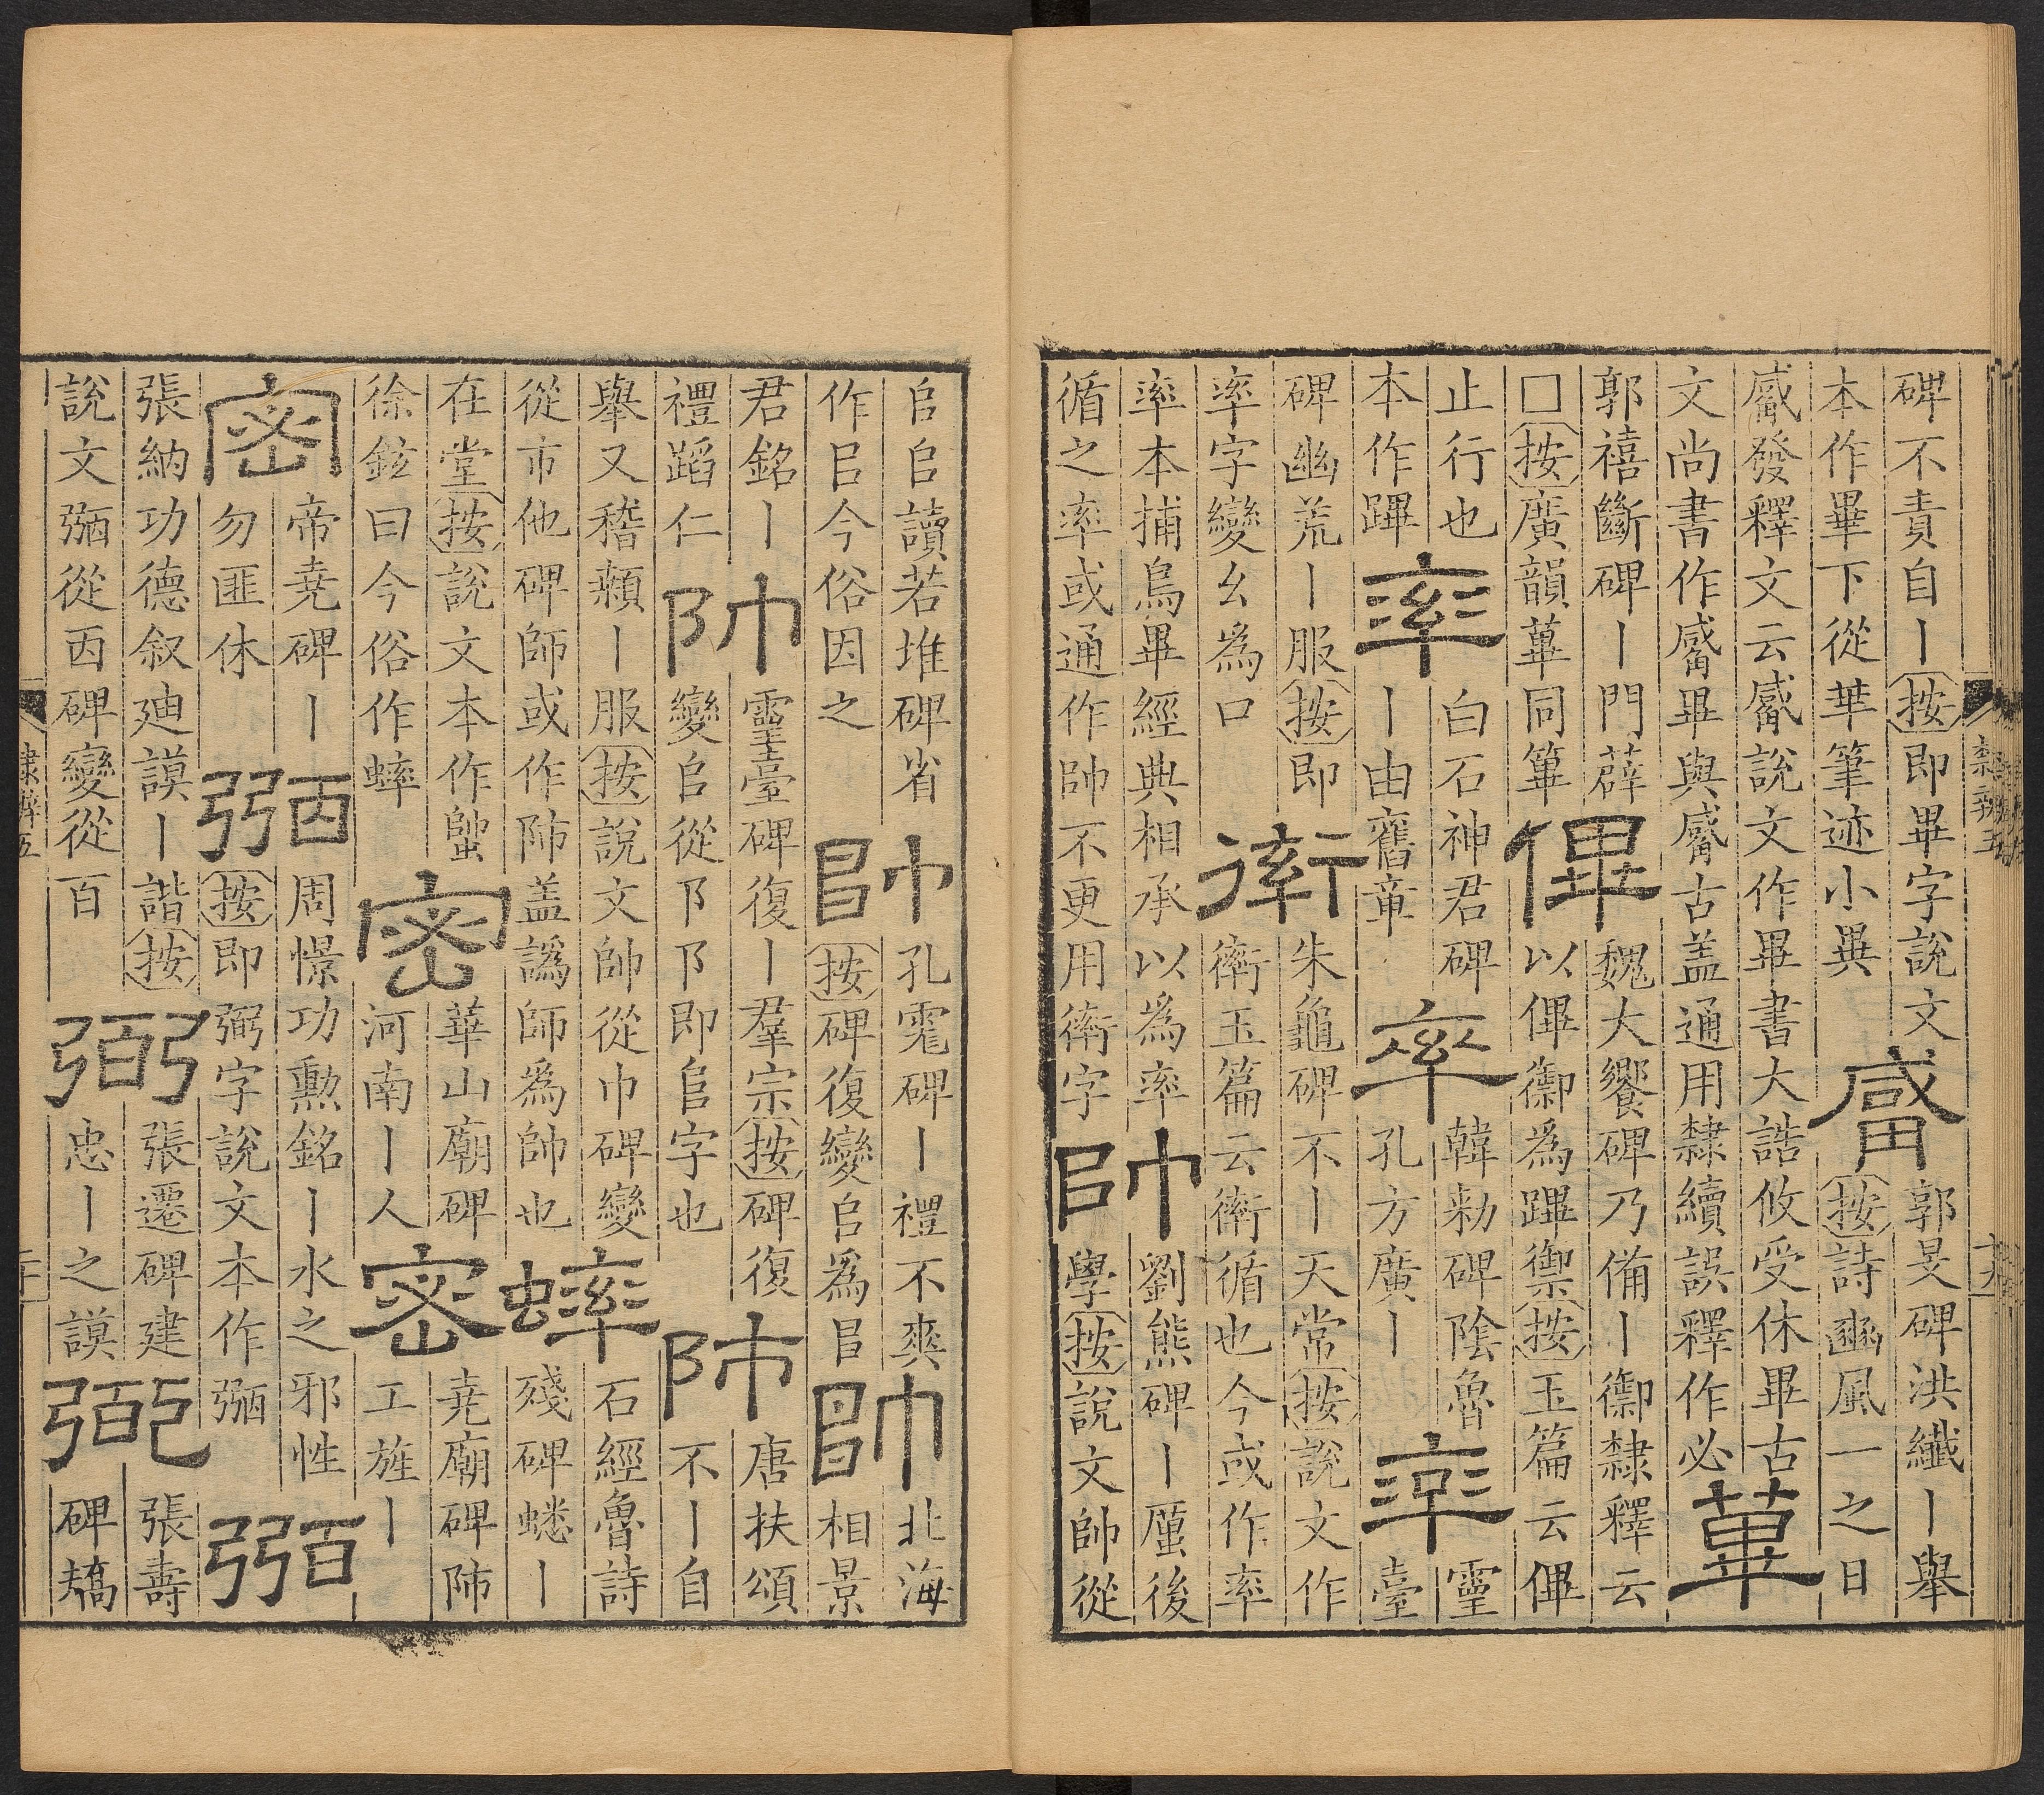 碑不責自丨按即畢字說文
本作畢下從華筆迹小異
觱
郭旻碑洪纖丨舉
按詩豳風一之日
觱發釋文云觱說文作畢書大誥攸受休畢古
文尚書作觱畢與觱古盖通用隸續誤釋作必
蓽
郭禧斷碑丨門薜
□按廣韻蓽同篳
㑻
魏大饗碑乃備丨御隸釋云
以㑻御爲蹕禦按玉篇云㑻
止行也
本作蹕
率
白石神君碑
丨由舊章
率
韓勑碑陰魯
孔方廣丨
率
靈
臺
碑幽荒丨服按即
率字變幺爲口
䘕
朱龜碑不丨天常按說文作
䘕玉篇云䘕循也今或作率
率本捕鳥畢經典相承以爲率
循之率或通作帥不更用䘕字
帥
劉熊碑丨厲後
學按說文帥從
隸辨五
𠂤𠂤讀若堆碑省
作㠯今俗因之
帥
孔霮碑丨禮不爽
按碑復變𠂤爲
帥
北海
相景
君銘丨
禮蹈仁
帥
靈臺碑復丨羣宗按碑復
變𠂤從阝阝即𠂤字也
唐扶頌
不丨自
舉又稽顙丨服按說文帥從巾碑變
從市他碑師或作盖譌師爲帥也
蟀
石經魯詩
殘碑蟋丨
在堂按說文本作䗐
徐鉉曰今俗作蟀
密
華山廟碑
河南丨人
密
堯廟碑師
工旌丨
密
帝堯碑丨
勿匪休
弼
周憬功勲銘丨水之邪性
按即弼字說文本作弻
弼
張納功德叙廸謨丨諧按
說文弻從㐁碑變從百
弼
張遷碑建
忠丨之謨
弼
張壽
碑矯
隸辨五